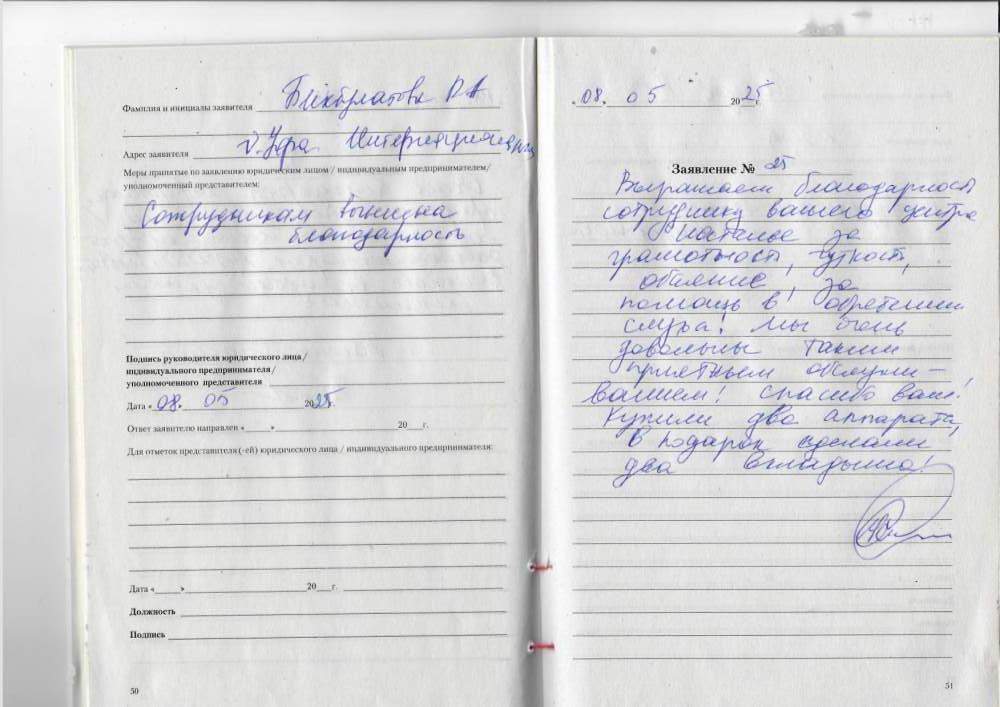 Фамилия и инициалы заявителя Бикбулатова Р А
Адрес заявителя г. Уфа Интернациональ
Меры принятые по заявлению юридическим лицом / индивидуальным предпринимателем/
уполномоченный представителем:
Сотрудникам вынесена
благодарность
Подпись руководителя юридического лица/
индивидуального предпринимателя/
уполномоченного представителя
Дата « 08. 05 2025г.
Ответ заявителю направлен «_____» 20___г.
Для отметок представителя (-ей) юридического лица / индивидуального предпринимателя:
Дата «_____» 20___г.
Должность
Подпись
50
08. 05 2025г.
Заявление № 25
Выражаем благодарность
сотруднику вашего центра
Наталье за
грамотность, чуткость,
обаяние, за
помощь в обретении
слуха! Мы очень
довольны таким
приятным обслужи-
ванием! Спасибо вам!
Купили два аппарата,
в подарок сделали
два вкладыша!
51